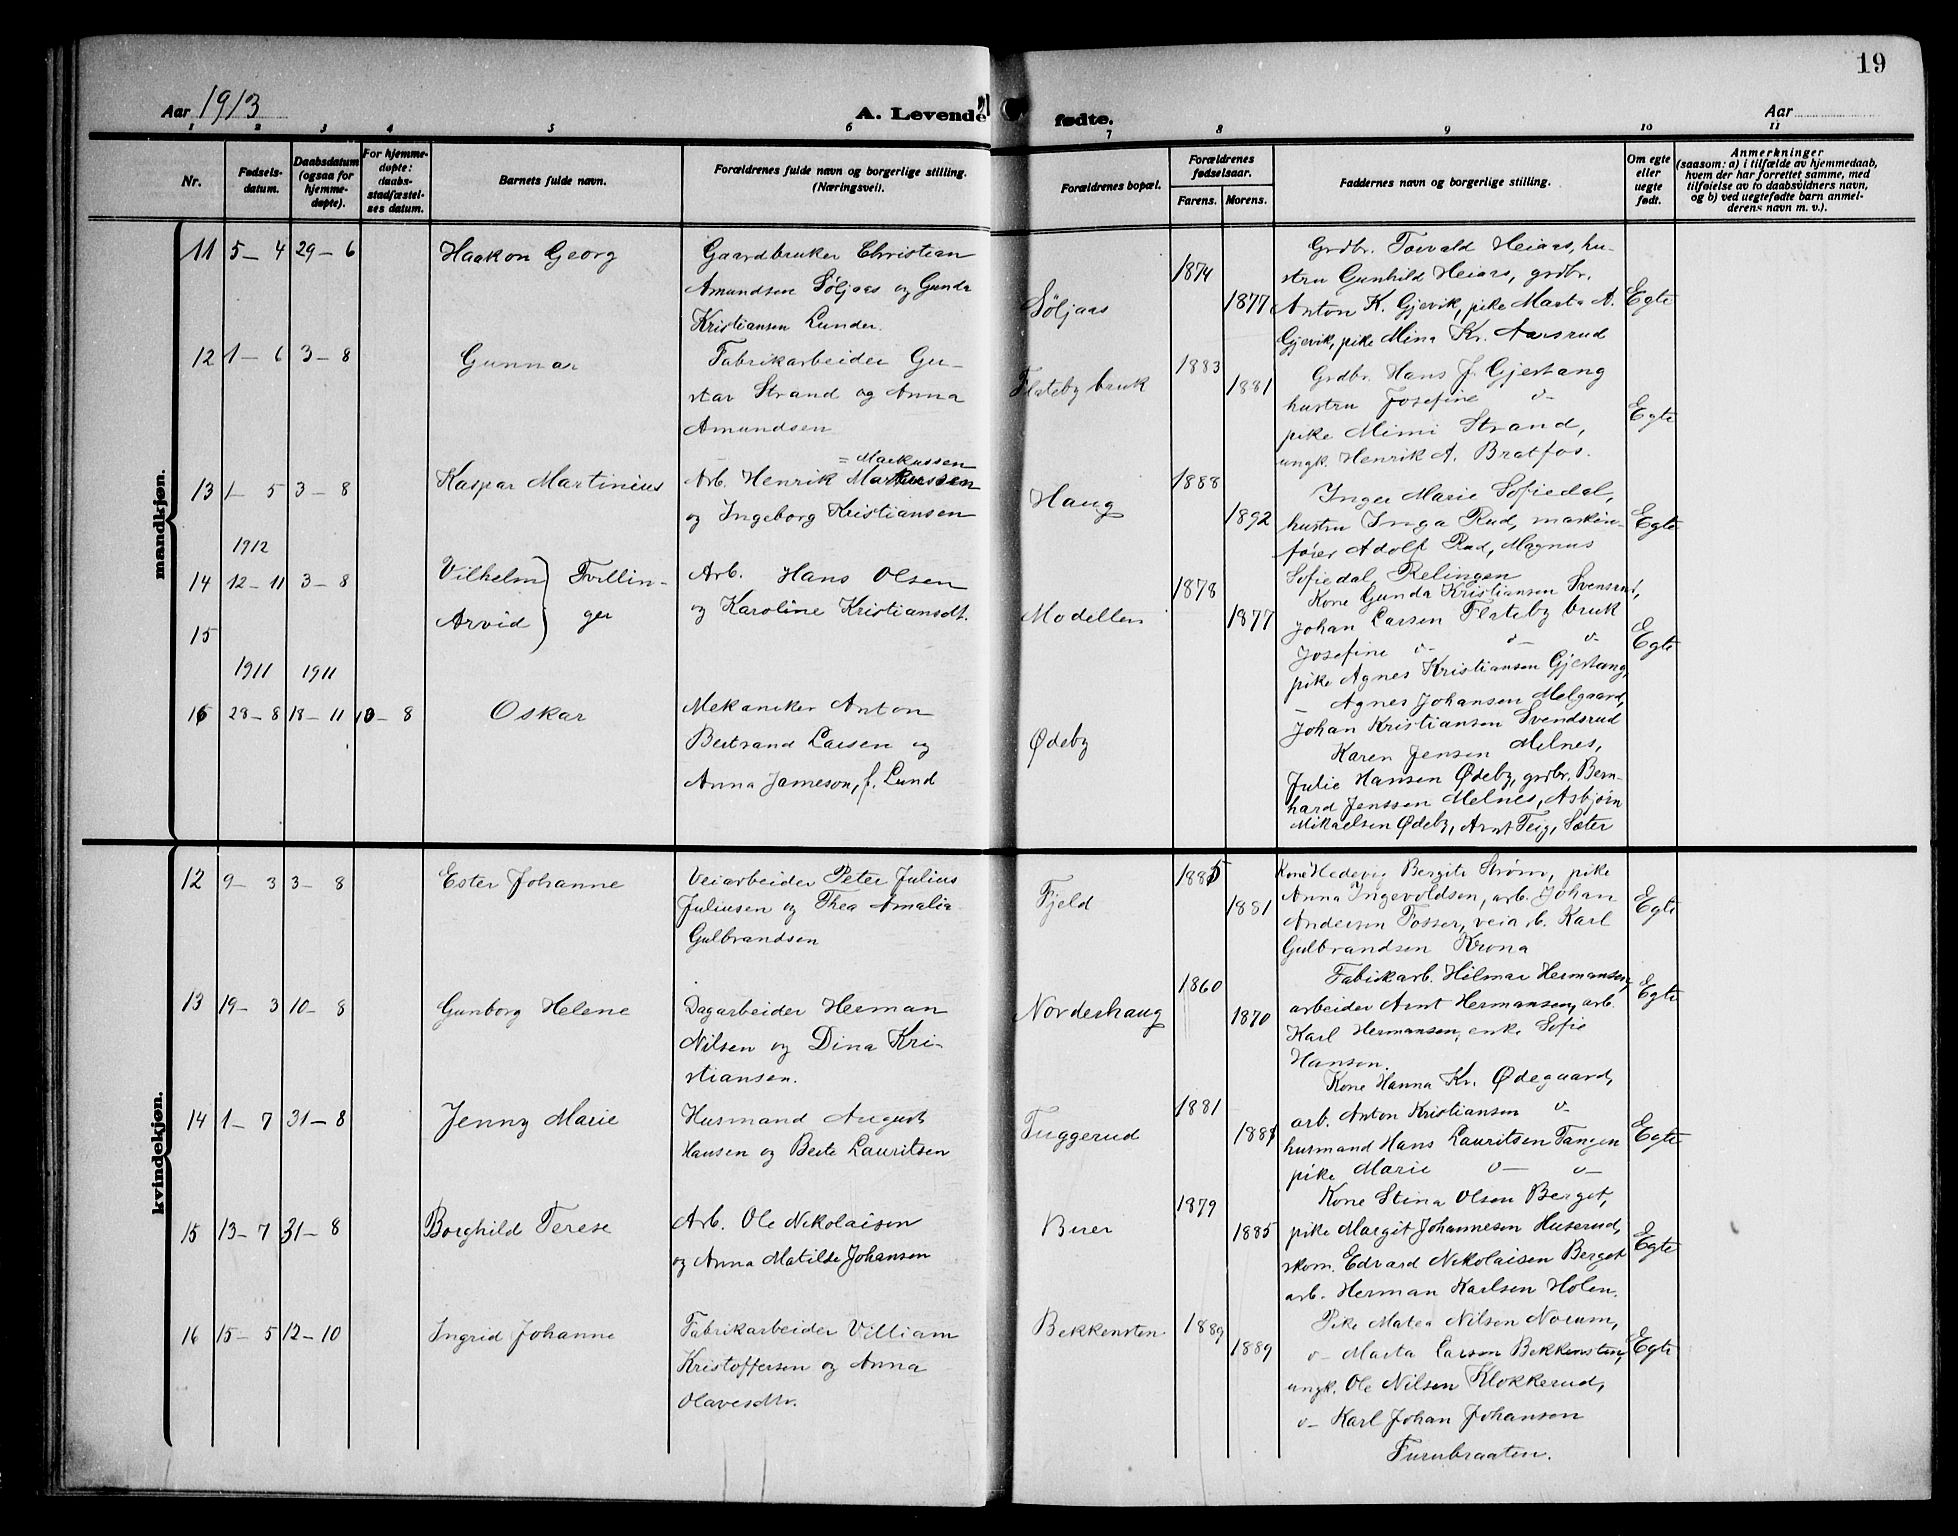 19
Aar 1913
A. Levende fødte.
Aar
1 2 3 4 5 6 7 8 9 10 11
Nr.
Fødsels-
datum.
Daabsdatum
(ogsaa for
hjemme-
døpte).
For hjemme-
døpte:
daabs-
stadfæstel-
ses datum.
Barnets fulde navn.
Forældrenes fulde navn og borgerlige stilling.
(Næringsvei).
Forældrenes bopæl.
Forældrenes
fødselsaar.
Farens. Morens.
Faddernes navn og borgerlige stilling.
Om egte
eller
uegte
født.
Anmerkninger
(saasom: a) i tilfælde av hjemmedaab,
hvem der har forrettet samme, med
tilføielse av to daabsvidners navn,
og b) ved uegtefødte barn anmel-
derens navn m. v.).
mandkjøn.
11 5–4 29–6
Haakon Georg
Gaardbruker Christian
Amundsen Søljaas og Gunda
Kristiansen Lunder.
Søljaas
1874
1877
Grdbr. Torvald Heiaas, hu-
stru Gunhild Heiaas, grdbr.
Anton K. Gjevik, pike Marta A.
Gjevik, pike Mina Kr. Aarsrud
Egte
12 1–6 3–8
Gunnar
Fabrikarbeider Gu-
stav Strand og Anna
Amundsen
Flateby bruk
1883
1881
Grdbr. Hans J. Gjeshang
hustru Josefine v–
pike Mimi Strand,
ungk. Henrik A. Bratfos.
Egte
13 1–5 3–8
Kaspar Martinius
= Markussen
Arb. Henrik Markussen
og Ingeborg Kristiansen
Haug
1888
1892
Inger Marie Sofiedal,
hustru Inga Rud, maskin-
fører Adolf Rud, Magnus
Sofiedal, Relingen
Egte
1912
14 12–11 3–8
15
Vilhelm } Tvillin-
Arvid } ger
Arb. Hans Olsen
og Karoline Kristiansdt.
Modellen
1878
1877
Kone Gunda Kristiansen Svensrud,
Johan Larsen Flateby bruk
Josefine v– v–
pike Agnes Kristiansen Gjeshang,
– Agnes Johansen Melgaard,
Johan Kristiansen Svendsrud
Egte
1911 1911
16 28–8 18–11 10–8
Oskar
Mekaniker Anton
Bertrand Larsen og
Anna Jameson, f. Lund
Ødeby
Karen Jensen Melnes,
Julie Hansen Ødeby, grdbr. Bern-
hard Jenssen Melnes, Asbjørn
Mikaelsen Ødeby, Arnt Teig, Sæter
kvindekjøn.
12 9–3 3–8
Ester Johanne
Veiarbeider Peter Julius
Juliusen og Thea Amalia
Gulbrandsen
Fjeld
1885
1881
Kone Hedevig Bergite Strøm, pike
Anna Ingevoldsen, arb. Johan
Andersen Fosser, veiarb. Karl
Gulbrandsen Krona
Egte
13 19–3 10–8
Gunborg Helene
Dagarbeider Herman
Nilsen og Dina Kri-
stiansen.
Norderhaug
1860
1870
Fabrikarb. Hilmar Hermansen,
arbeider Arnt Hermansen, arb.
Karl Hermansen, enke Sofie
Hanson.
Egte
14 1–7 31–8
Jenny Marie
Husmand August
Hansen og Berte Lauritsen
Tuggerud
1881
1881
Kone Hanna Kr. Ødegaard,
arb. Anton Kristiansen v–
husmand Hans Lauritsen Tangen
pike Marie v– v–
Egte
15 13–7 31–8
Borghild Terese
Arb. Ole Nikolaisen
og Anna Matilde Johansen
Buer
1879
1885
Kone Stina Olsen Berget,
pike Margit Johannesen Huserud,
skom. Edvard Nikolaisen Berget
arb. Herman Karlsen Holen.
Egte
16 15–5 12–10
Ingrid Johanne
Fabrikarbeider Villiam
Kristoffersen og Anna
Olavesdtr.
Bekkensten
1889
1889
Pike Matea Nilsen Norum,
v– Marta Larsen Bekkensten,
ungk. Ole Nilsen Klokkerud,
v– Karl Johan Johansen
Furubraaten.
Egte